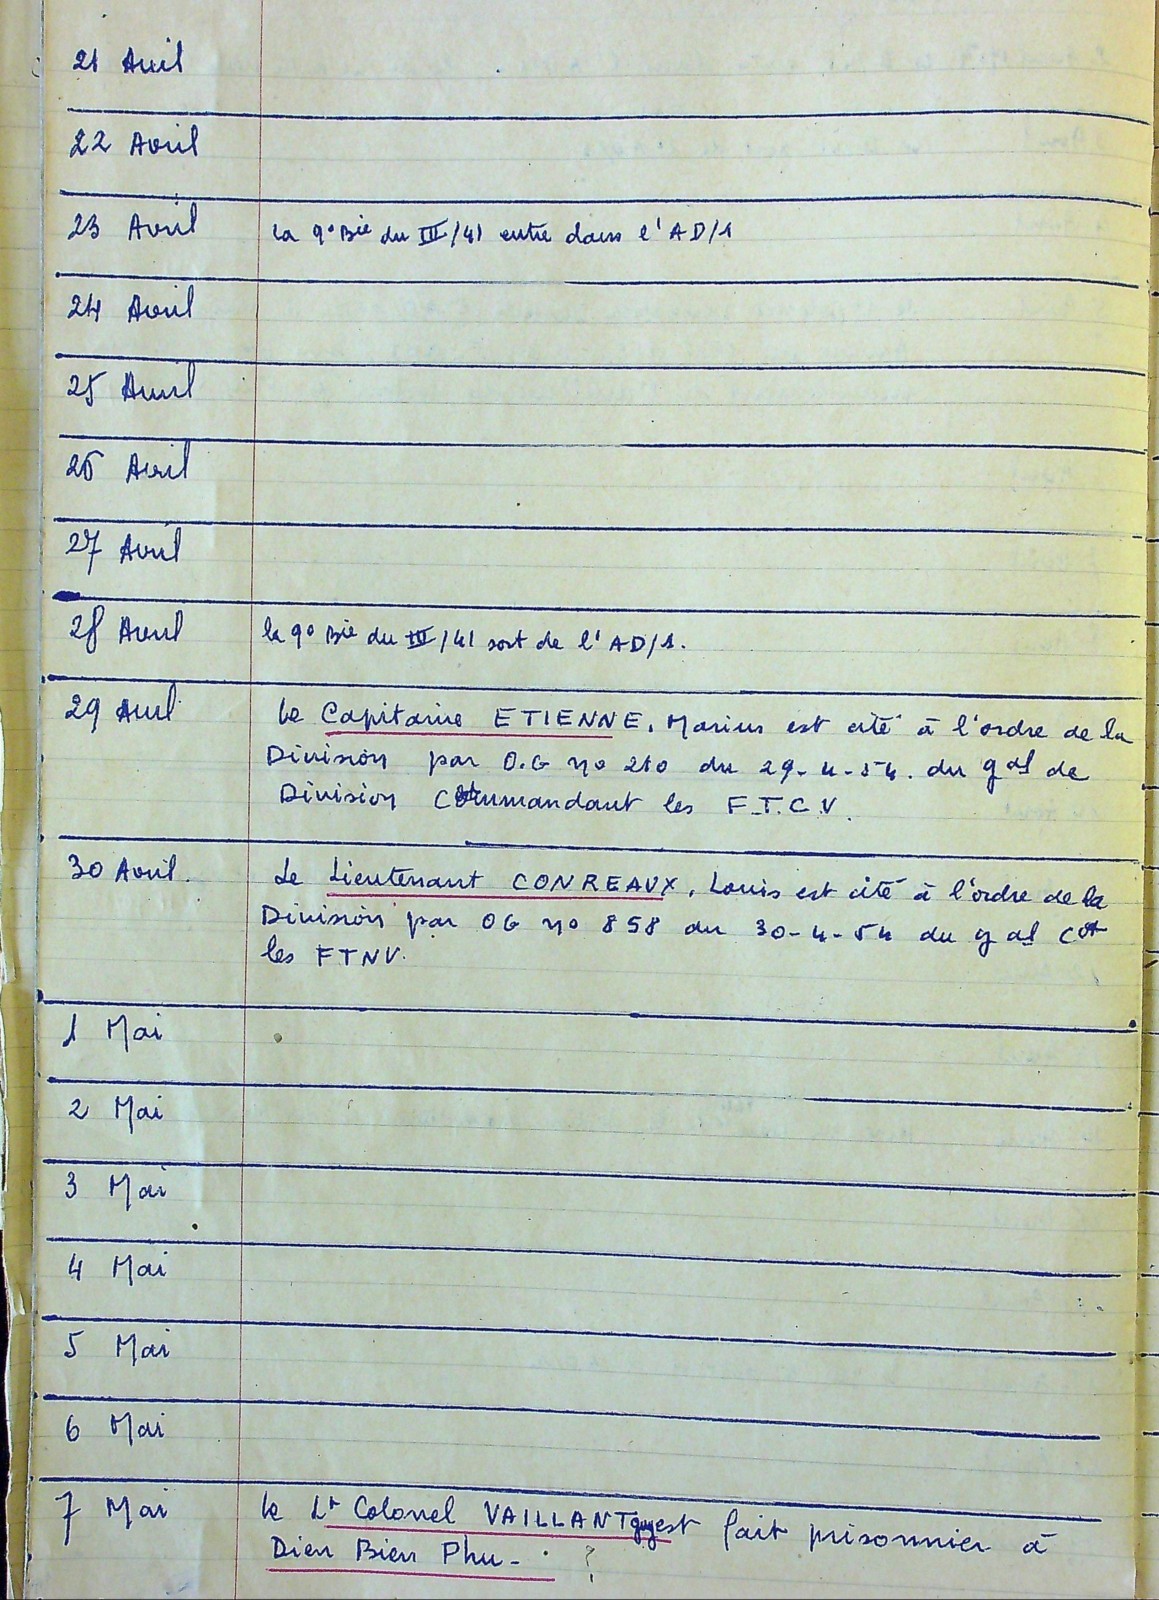 21 Avril
22 Avril
23 Avril la 9° Bie du III/41 entre dans l'AD/1
24 Avril
25 Avril
26 Avril
27 Avril
28 Avril la 9° Bie du III/41 sort de l'AD/1.
29 Avril Le Capitaine ETIENNE, Marius est cité à l'ordre de la
Division par O.G no 210 du 29-4-54. du gal de
Division Commandant les F.T.C.V.
30 Avril. Le Lieutenant CONREAUX, Louis est cité à l'ordre de la
Division par OG no 858 du 30-4-54 du gal Cdt
les FTNV.
1 Mai
2 Mai
3 Mai
4 Mai
5 Mai
6 Mai
7 Mai le Lt Colonel VAILLANT Guy est fait prisonnier à
Dien Bien Phu-